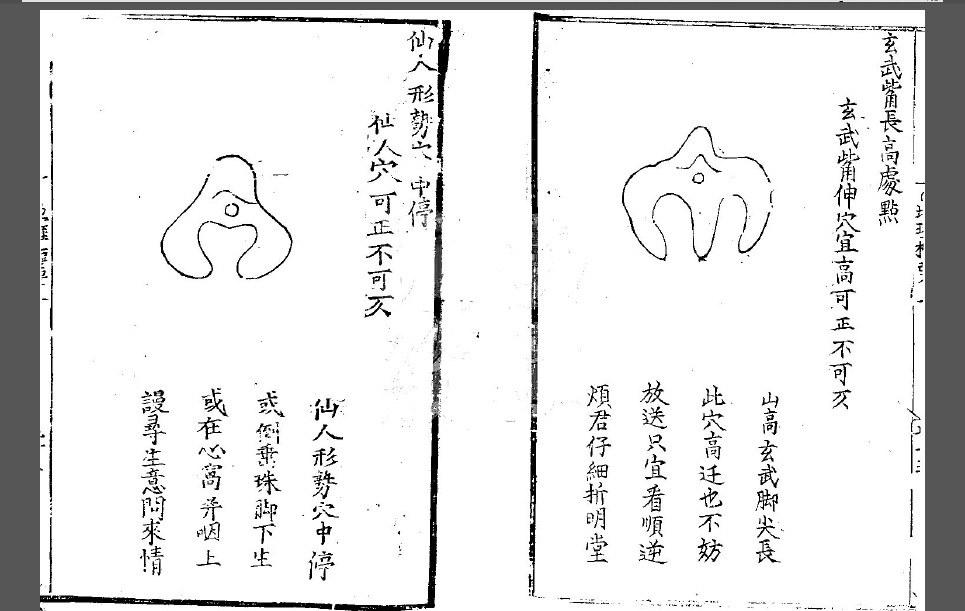 玄武觜長高處點
玄武觜伸穴宜高可正不可仄
山高玄武脚尖長
此穴高迁也不妨
放送只宜看順逆
煩君仔細折明堂
仙人形勢穴中停
仙人穴可正不可仄
仙人形勢穴中停
或倒垂珠脚下生
或在心窩并咽上
謾尋生意問來情